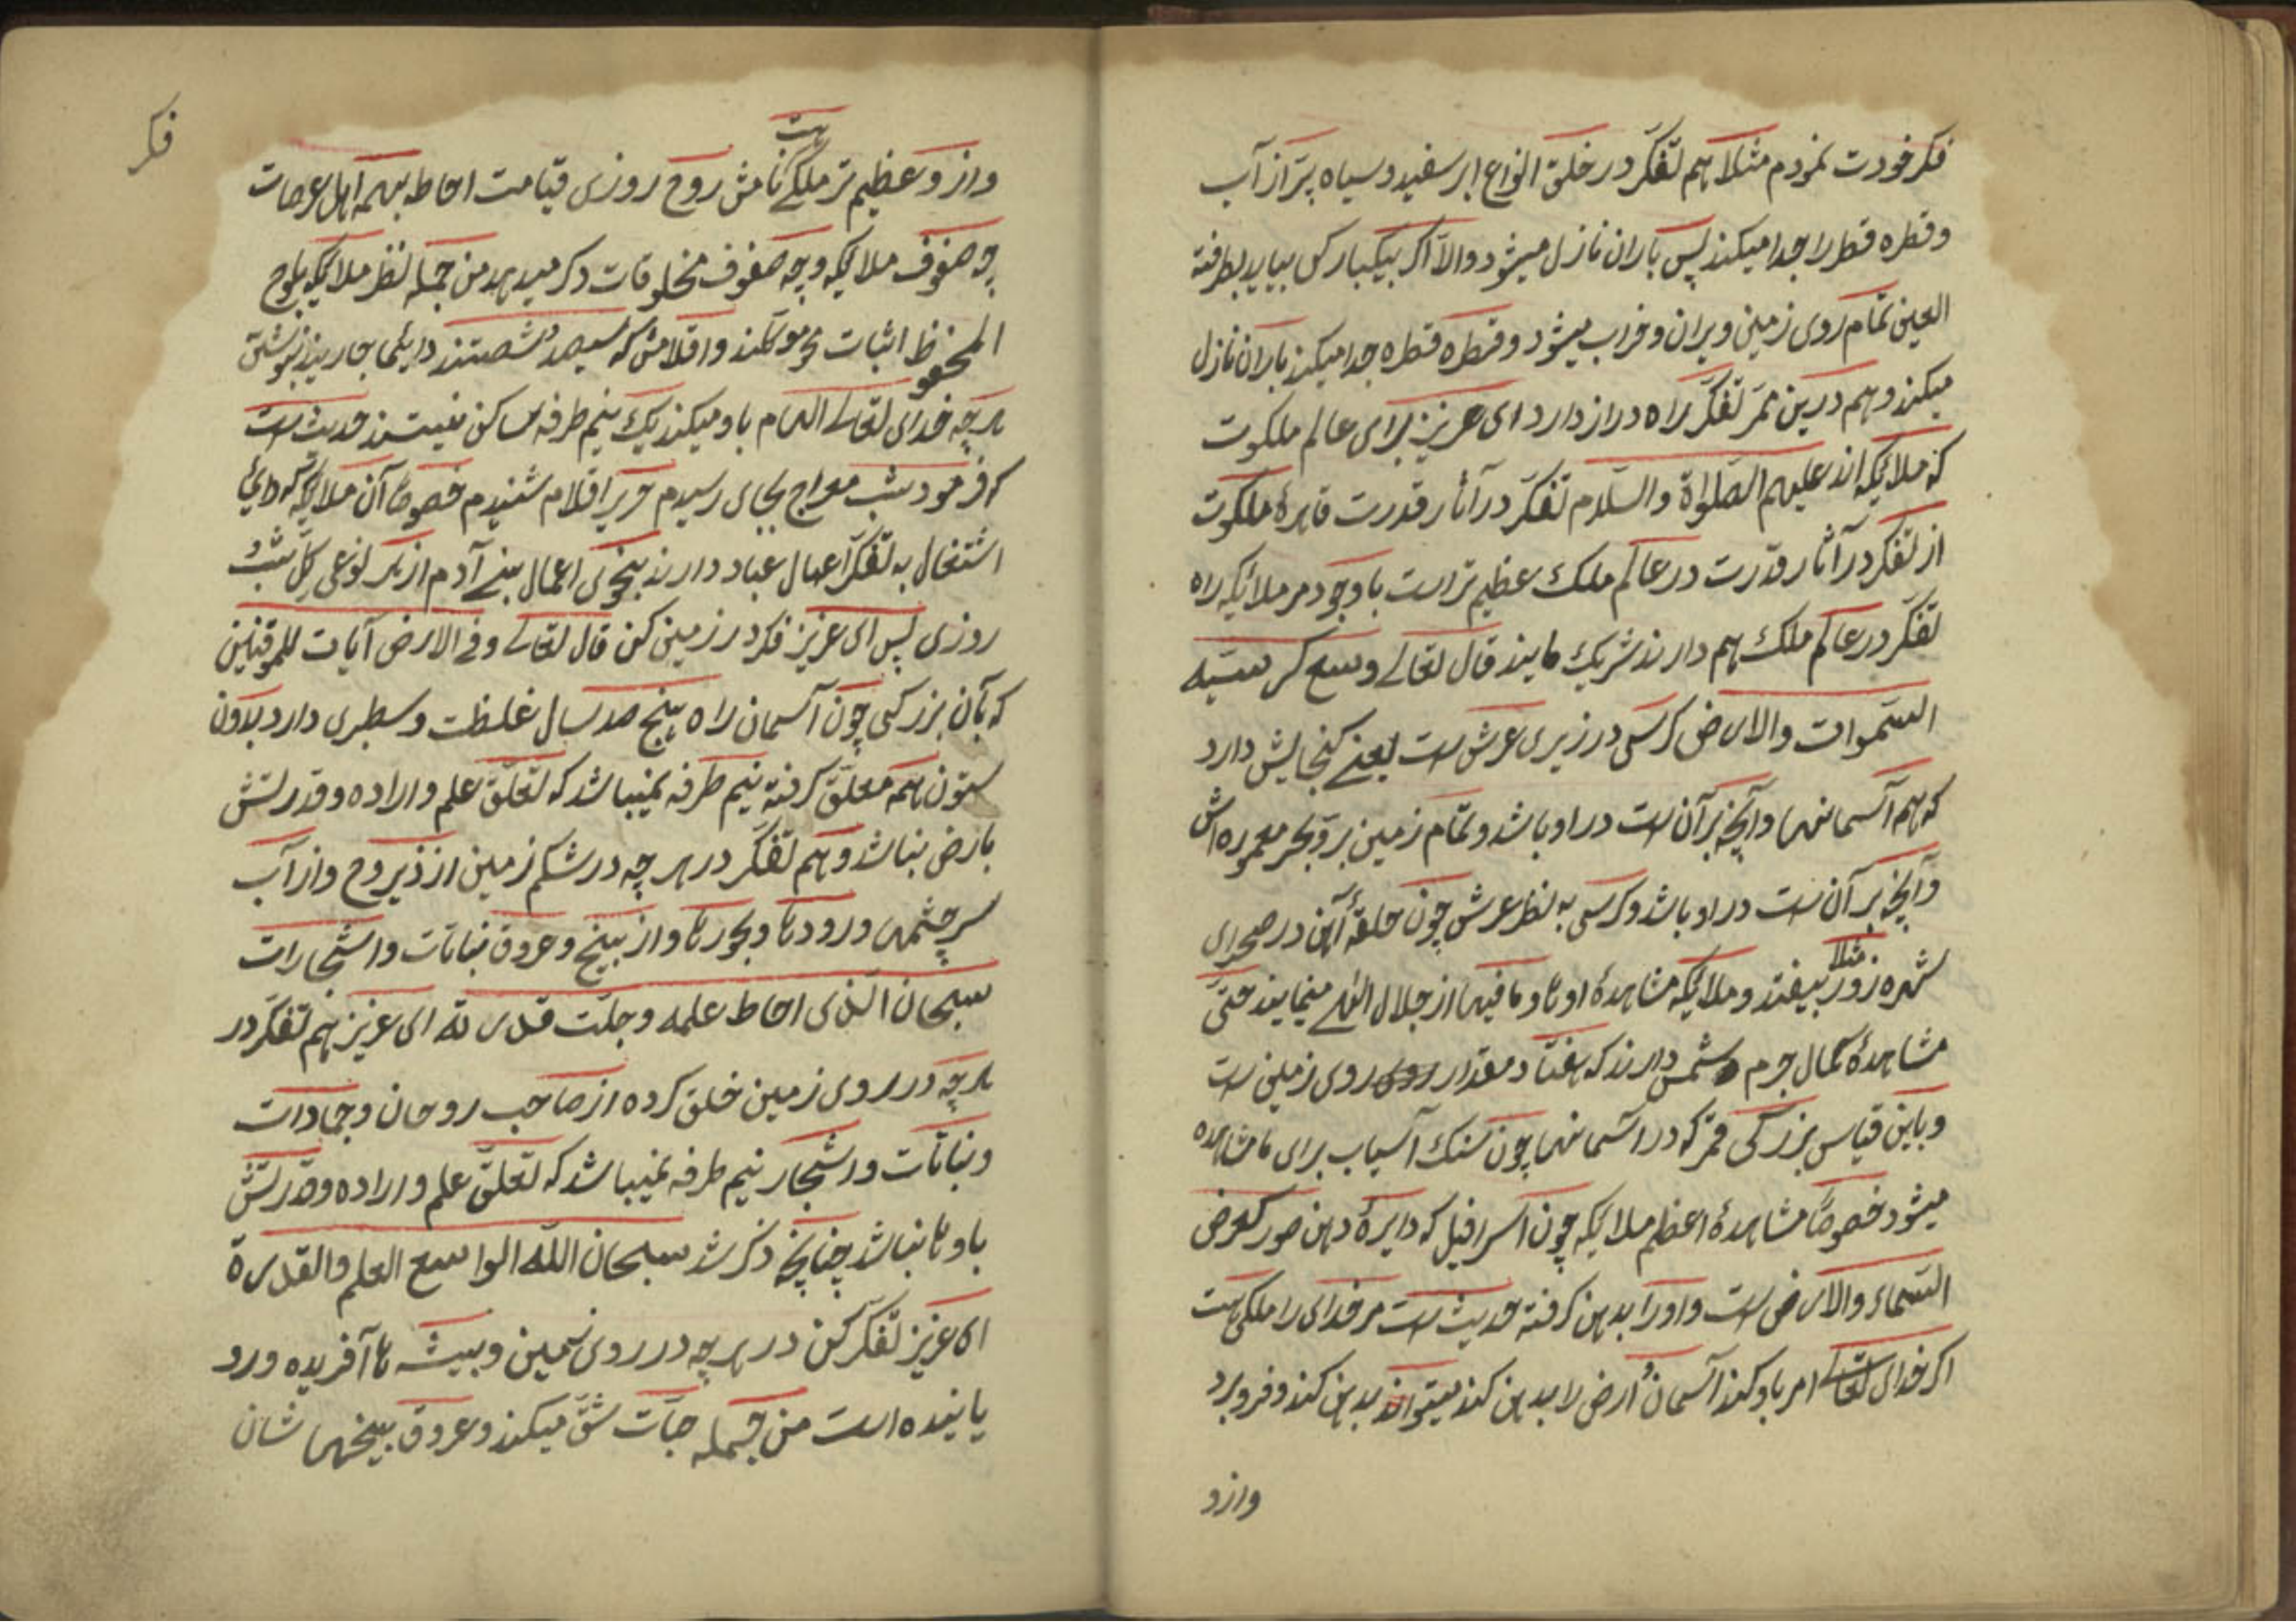 فکر خودت نمودم مثلا هم تفکر در خلق انواع ابر سفید و سیاه پر از آب
و قطره قطرا جدا میکند پس باران نازل میشود والا اکر بیکبارکی بیاید بطرفة
العین تمام روی زمین ویران و خراب میشود و قطره قطره جدا میکند باران نازل
میکند و هم درین ممر تفکر راه دراز دارد ای عزیز برای عالم ملکوت
که ملائیکه اند علیهم الصلواة والسلام تفکر در آثار قدرت قاهرهٔ ملکوت
از تفکر در آثار قدرت در عالم ملک عظیم تر است باوجود مر ملائیکه راه
تفکر در عالم ملک هم دارند شریک مایند قال تعالے وسع کرسیه
السموات والارض کرسی در زیری عرش است یعنے کنجایش دارد
که هم آسمانها و آنچه بر آن است در او باشد و تمام زمین بر و بحر معموره اش
و آنچه بر آن است در او باشد و کرسی به نظر عرش چون حلقهٔ آهن در صحرای
شهره زور مثلا بیفتد و ملائیکه مشاهدهٔ اوها و ما فیها از جلال الهے مینمایند حتی
مشاهدهٔ کمال جرم شمس دارند که هفتاد مقدار روی زمین است
و باین قیاس بزرکی قمر که در اسمانها چون سنک آسیاب برای ما مشاهده
میشود خصوصا مشاهدهٔ اعظم ملائیکه چون اسرافیل که دایرهٔ دهن صور کعرض
السماء والارض است و اورا بدهن کرفته حدیث است مر خدای را ملکی هست
اکر خدای تعالے امر باو کند آسمان و ارض را بدهن کند میتواند بدهن کند و فرو برد
وازو
فکر
وازو عظیم تر ملکے هست نامش روح روزی قیامت احاطه بهمه اهل عرصات
چه صفوف ملائیکه و چه صفوف مخلوقات دکر میدهد من جمله نظر ملائیکه بلوح
المحفوظ اثبات محو کنند و اقلامش که سیصد و شصتند دایما جاریند بنوشتن
هر چه خدای تعالے الهام باو میکند یک نیم طرفه ساکن نیستند حدیث است
که فرمود شب معراج بجای رسیدم صریر اقلام شنیدم خصوصا آن ملائیکه که دایم
اشتغال به تفکر اعمال عباد دارند بنحوی اعمال بنے آدم از هر نوعی کل شب و
روزی پس ای عزیز فکر در زمین کن قال تعالے وفے الارض آیات للموقنین
که بآن بزرکی چون آسمان راه پنج صد سال غلظت و سطبری دارد بدون
ستون همه معلق کرفته نیم طرفه نمیباشد که تعلق علم و اراده و قدرتش
بارض نباشد و هم تفکر در هر چه در شکم زمین از ذیروح و از آب
سرچشمها و رودها و بحورها و از بیخ و عروق نباتات و اشجارات
سبحان الذی احاط علمه و جلت قدرته ای عزیز هم تفکر در
هر چه در روی زمین خلق کرده از صاحب روحان و جمادات
و نباتات و اشجار نیم طرفه نمیباشد که تعلق علم و اراده و قدرتش
باوها نباشد چنانچه ذکر شد سبحان الله الواسع العلم والقدرة
ای عزیز تفکر کن در هر چه در روی زمین و بیشه ها آفریده و رو
یانیده است من جمله حبات شق میکند و عروق بیخها شان